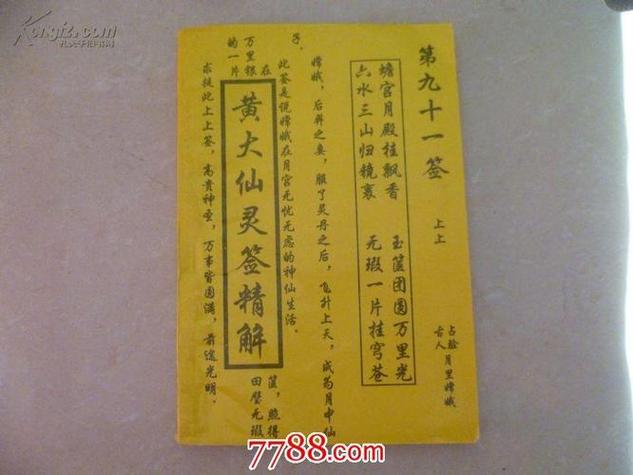 第九十一签
上上
占验古人
月里嫦娥
蟾宫月殿桂飘香
玉箧团圆万里光
六水三山归镜裏
无瑕一片挂穹苍
嫦娥，后羿之妻，服了灵丹之后，飞升上天，成为月中仙
子。
此签是说嫦娥在月宫无忧无虑的神仙生活。
在
万里银
的一片
箧，照得
无瑕
黄大仙灵签精解
此上上签，高贵神圣，万事皆圆满，前途光明。
Kongfz.com
7788.com